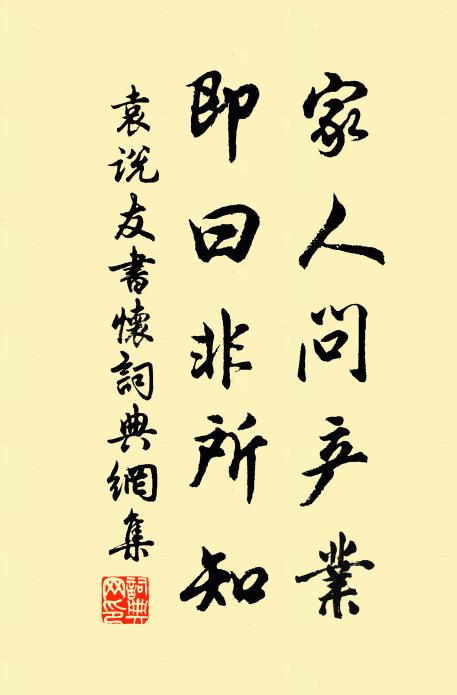 家人问产業
即曰非所知
袁说友書懷詞典網集
詞典網印